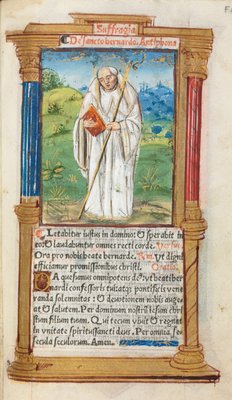 Suffragia
De sancto bernardo. Antiphona
Letabitur iustus in domino: & sperabit in
eo: & laudabuntur omnes recti corde. Versus
Ora pro nobis beate bernarde. Rm. Ut digni
efficiamur promissionibus christi. Oratio.
Da quesumus omnipotens deus: ut beati ber
nardi confessoris tui atque pontificis vene
randa solemnitas: & devotionem nobis auge
at & salutem. Per dominum nostrum iesum chri
stum filium tuum. Qui tecum vivit & regnat
in unitate spiritussancti deus. Per omnia se
cula seculorum. Amen.